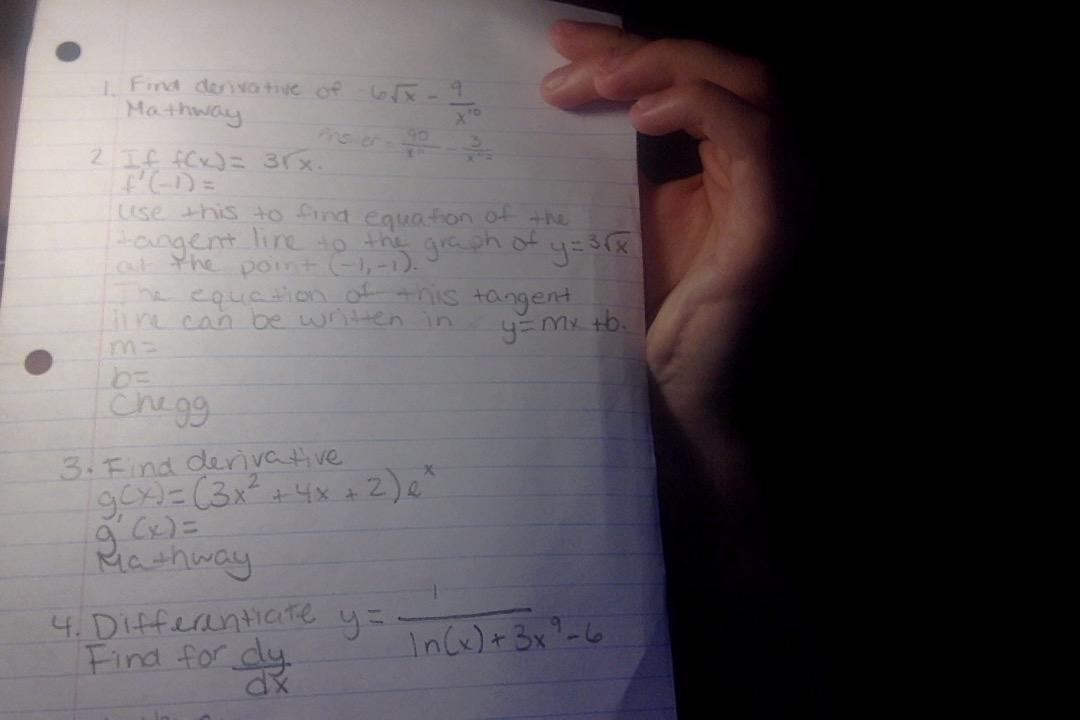 1. Find derivative of -6√x - 9/x¹⁰
Mathway
Answer = 90/x¹¹ - 3/x^1/2
2 If f(x) = 3√x.
f'(-1) =
use this to find equation of the
tangent line to the graph of y=3√x
at the point (-1,-1).
The equation of this tangent
line can be written in y=mx+b.
m=
b=
Chegg
3. Find derivative
g(x)=(3x²+4x+2)eˣ
g'(x)=
Mathway
4. Differentiate y= 1/ln(x)+3x⁹-6
Find for dy/dx